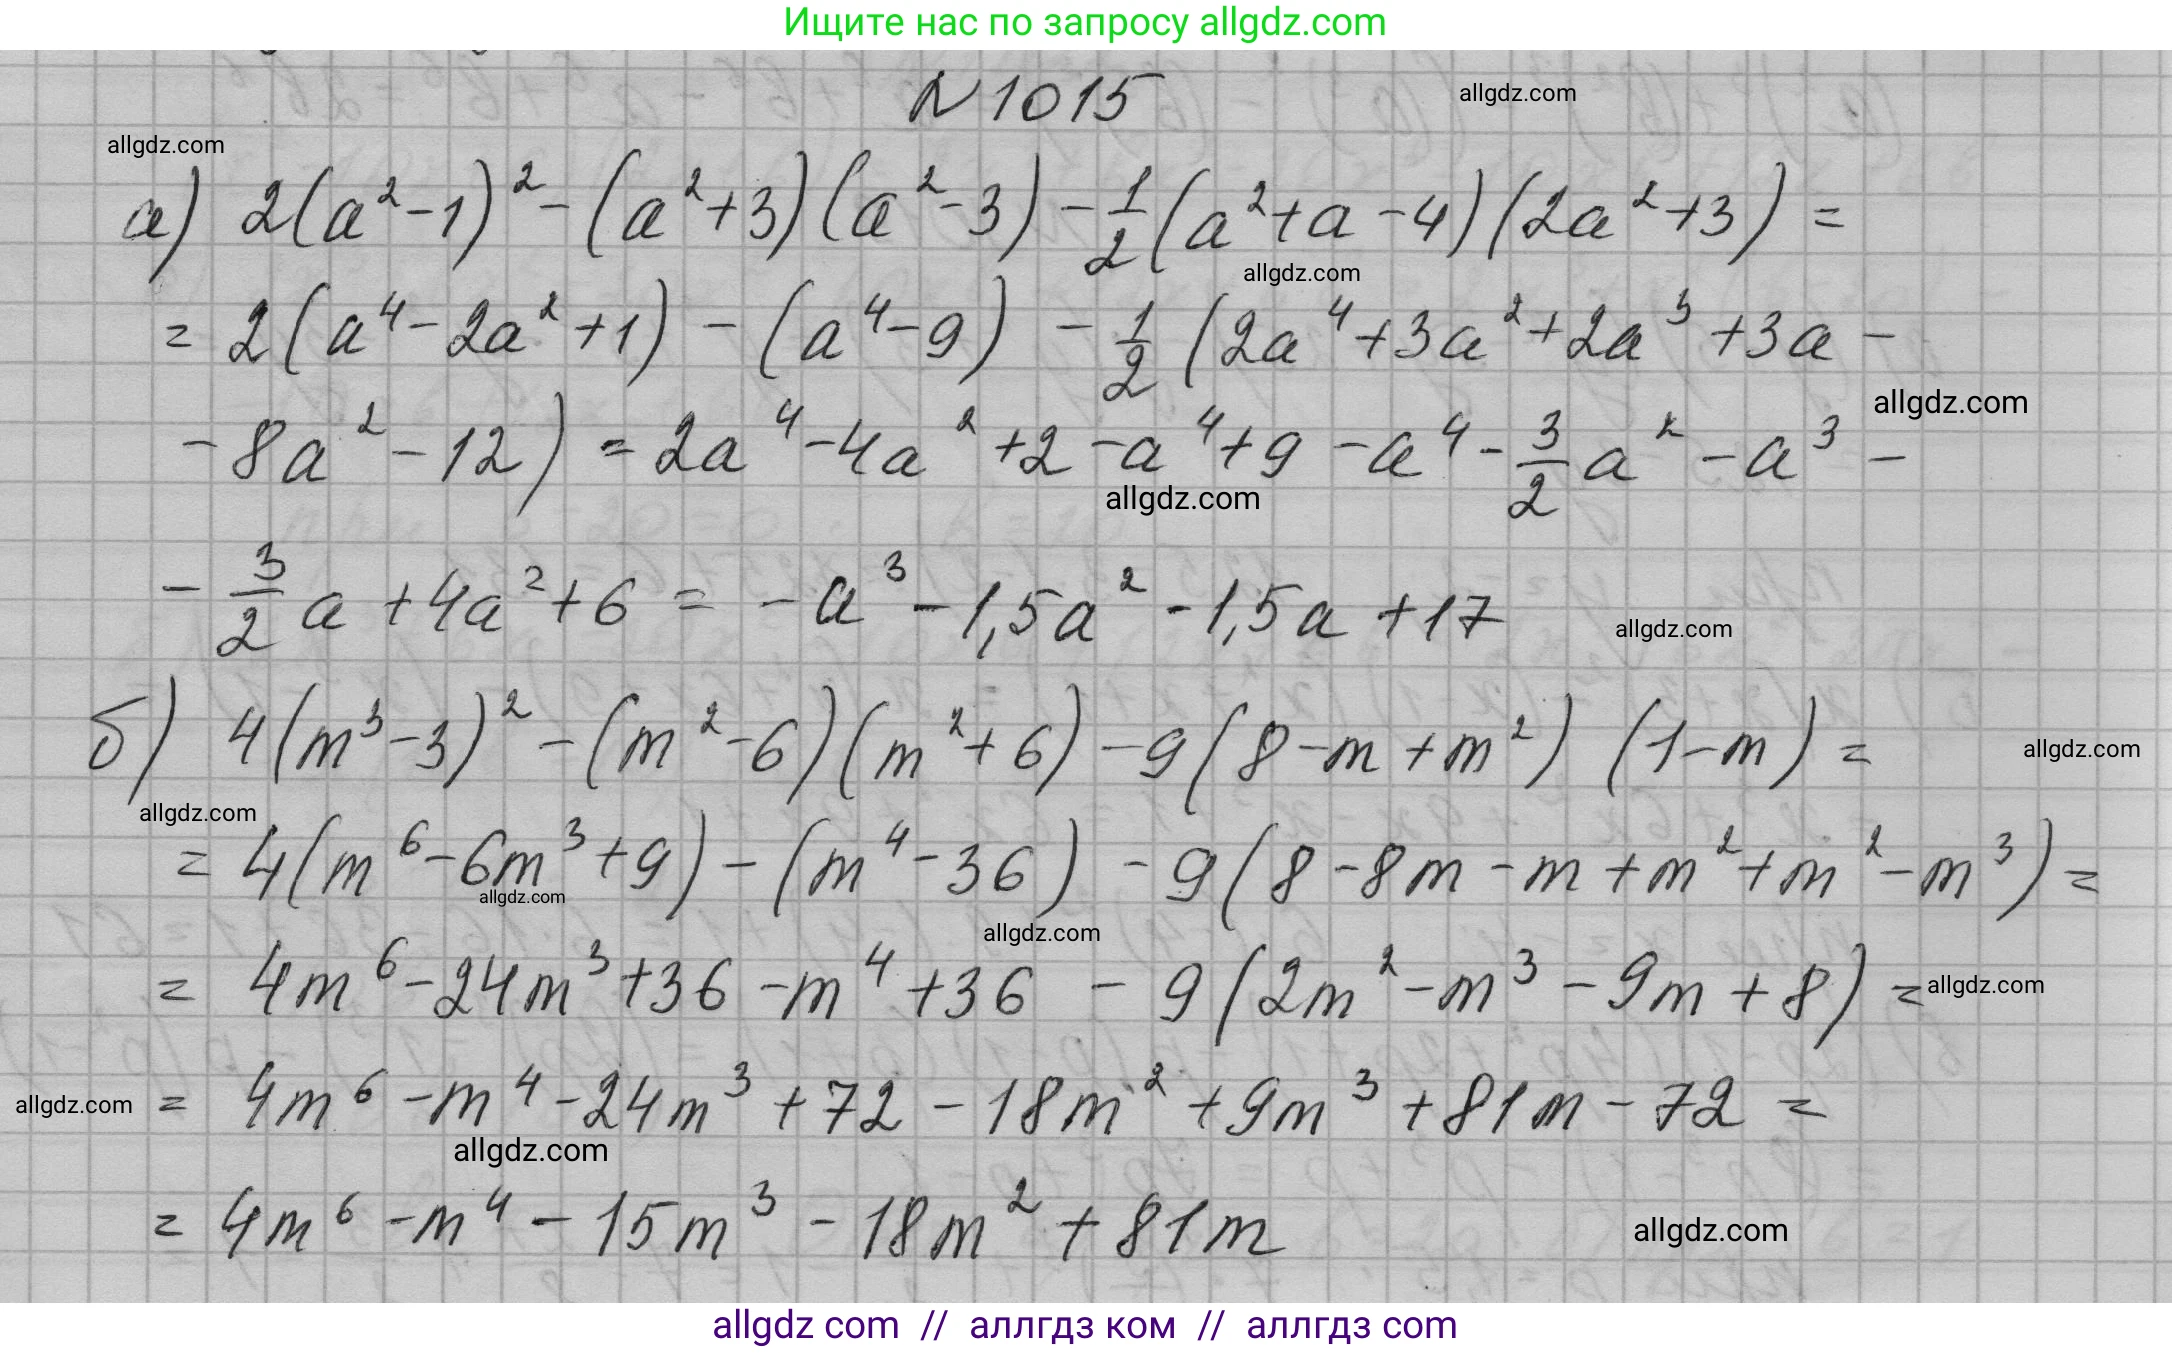 Ищите нас по запросу allgdz.com
N 1015
allgdz.com
allgdz.com
а) 2(a²-1)² - (a²+3)(a²-3) - 1/2(a²+a-4)(2a²+3) =
allgdz.com
= 2(a⁴-2a²+1) - (a⁴-9) - 1/2(2a⁴+3a²+2a³+3a-
allgdz.com
-8a²-12) = 2a⁴-4a²+2-a⁴+9-a⁴-3/2a²-a³-
allgdz.com
-3/2a+4a²+6 = -a³-1,5a²-1,5a+17
allgdz.com
б) 4(m³-3)² - (m²-6)(m²+6) - 9(8-m+m²)(1-m) =
allgdz.com
allgdz.com
= 4(m⁶-6m³+9) - (m⁴-36) - 9(8-8m-m+m²+m²-m³) =
allgdz.com
allgdz.com
= 4m⁶-24m³+36-m⁴+36 - 9(2m²-m³-9m+8) =
allgdz.com
= 4m⁶-m⁴-24m³+72-18m²+9m³+81m-72 =
allgdz.com
allgdz.com
= 4m⁶-m⁴-15m³-18m²+81m
allgdz.com
allgdz com // аллгдз ком // аллгдз com